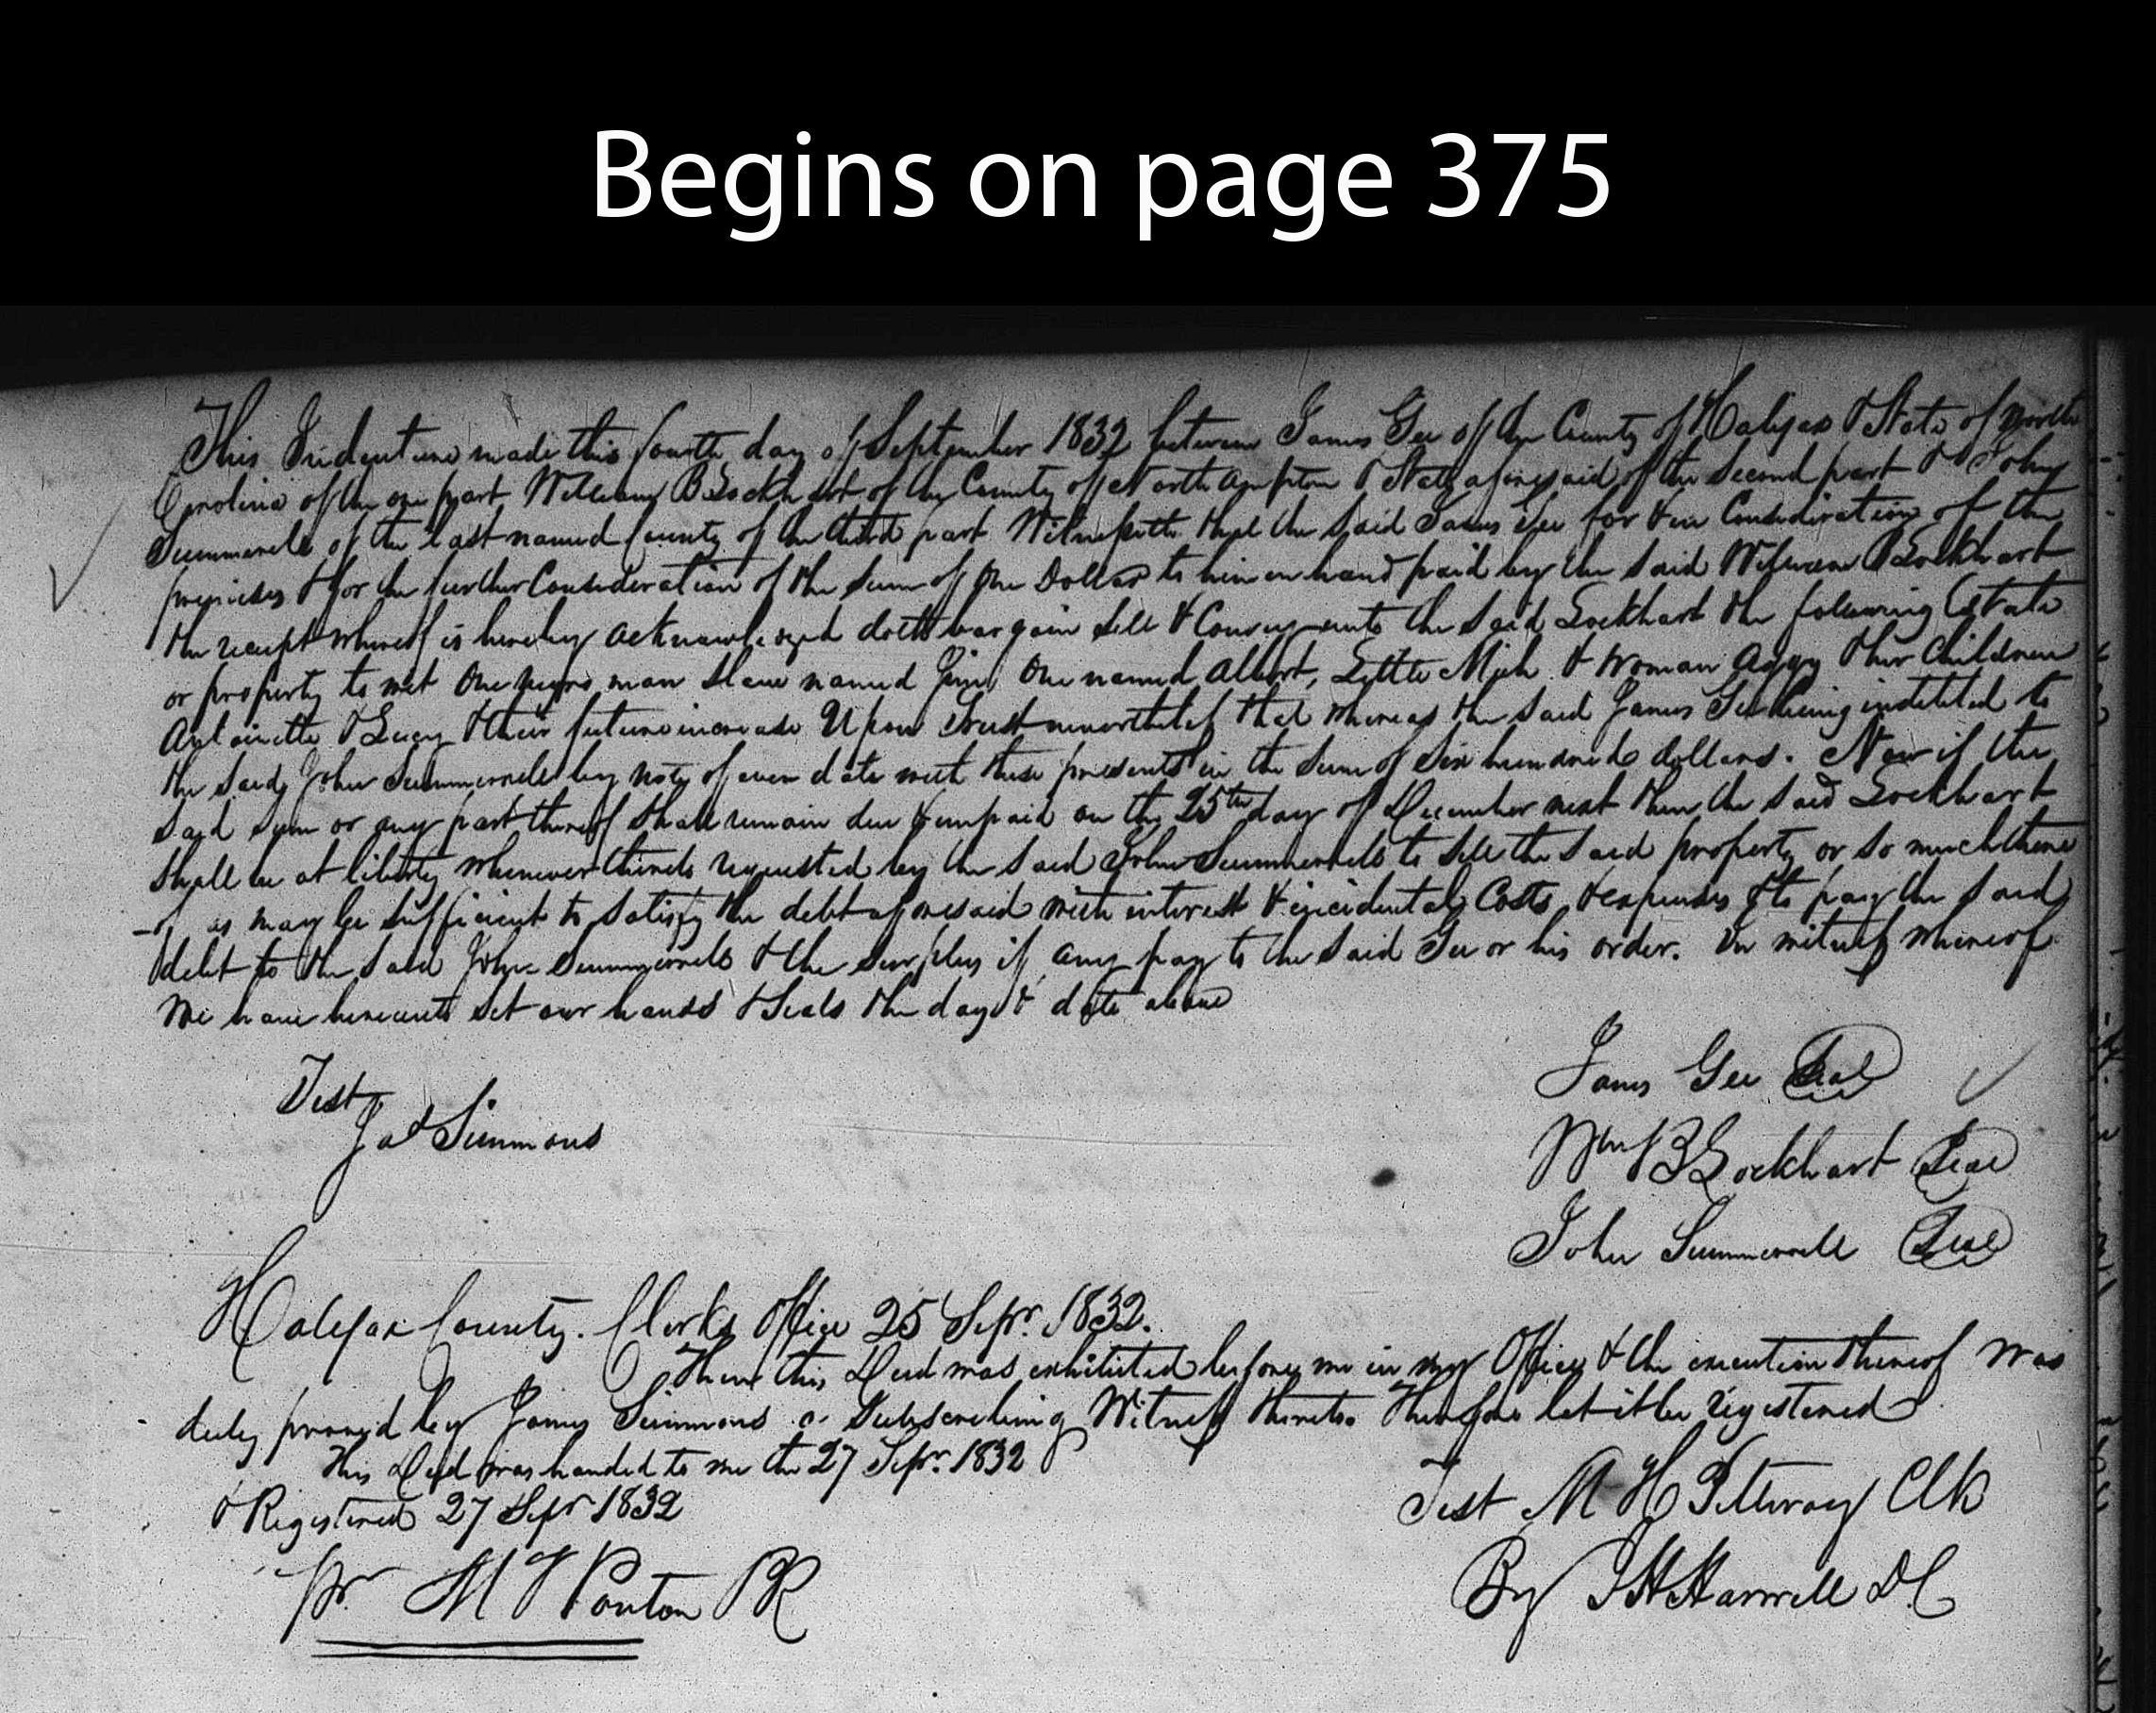 Begins on page 375
This Indenture made this fourth day of September 1832 between James Gee of the County of Halifax & State of North
Carolina of the one part William B Lockhart of the County of North ampton & State aforesaid of the second part & John
Summerell of the last named County of the third part Witnesseth that the said James Gee for & in Consideration of the
premises & for the further Consideration of the sum of One Dollar to him in hand paid by the said William B Lockhart
the receipt whereof is hereby acknowledged doth bargain sell & Convey unto the said Lockhart the following Estate
or property to wit One negro man slave named Jim, One named Albert, Little & woman Aggy & her Children
Antoinette & Lucy & their future increase Upon Trust nevertheless that whereas the said James Gee being indebted to
the said John Summerell by note of even date with these presents in the sum of Six hundred dollars. Now if the
said sum or any part thereof shall remain due & unpaid on the 25th day of December next then the said Lockhart
shall be at liberty whenever thereto requested by the said John Summerell to sell the said property or so much there
-of as may be sufficient to satisfy the debt aforesaid with interest & incidental Costs & expenses & to pay the said
debt to the said John Summerell & the surplus if any pay to the said Gee or his order. In witness whereof
We have hereunto set our hands & seals the day & date above
Test
Jas Simmons
James Gee Seal
Wm B Lockhart Seal
John Summerell Seal
Halifax County. Clerks Office 25 Sepr. 1832.
Then this Deed was exhibited before me in my Office & the execution thereof was
duly proved by James Simmons a Subscribing Witness thereto Therefore let it be registered
This Deed was handed to me the 27 Sepr. 1832
& Registered 27 Sepr 1832
Test M H Pettway Clk
pr M T Ponton PR
By J H Harwell DC